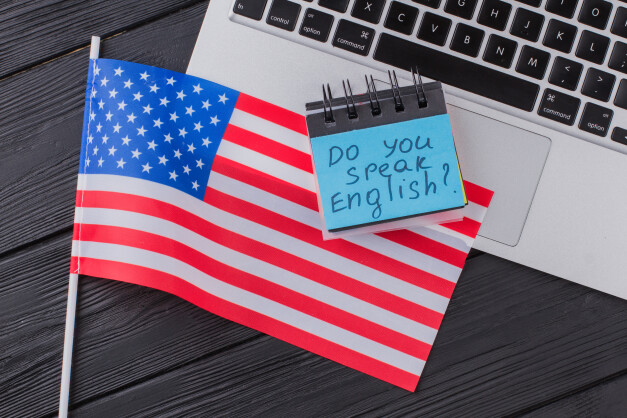 fn
control
option
command
Z
X
C
V
B
N
M
H
J
K
L
O
P
<
,
>
.
?
/
command
option
Do you
speak
English?